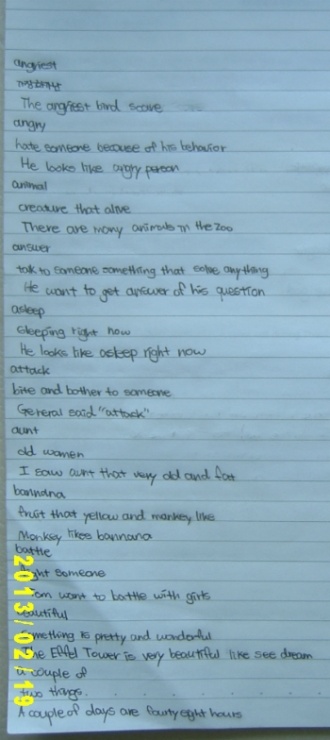 angriest
The angriest bird scare
angry
hate someone because of his behavior
He looks like angry person
animal
creature that alive
There are many animals in the zoo
answer
talk to someone something that solve anything
He want to get answer of his question
asleep
sleeping right now
He looks like asleep right now
attack
bite and bother to someone
General said "attack"
aunt
old women
I saw aunt that very old and fat
bannana
fruit that yellow and monkey like
Monkey likes bannana
battle
someone
want to battle with girls
is pretty and wonderful
Eiffel Tower is very beautiful like see dream
a couple of
two things.
A couple of days are fourty eight hours
2013/02/19